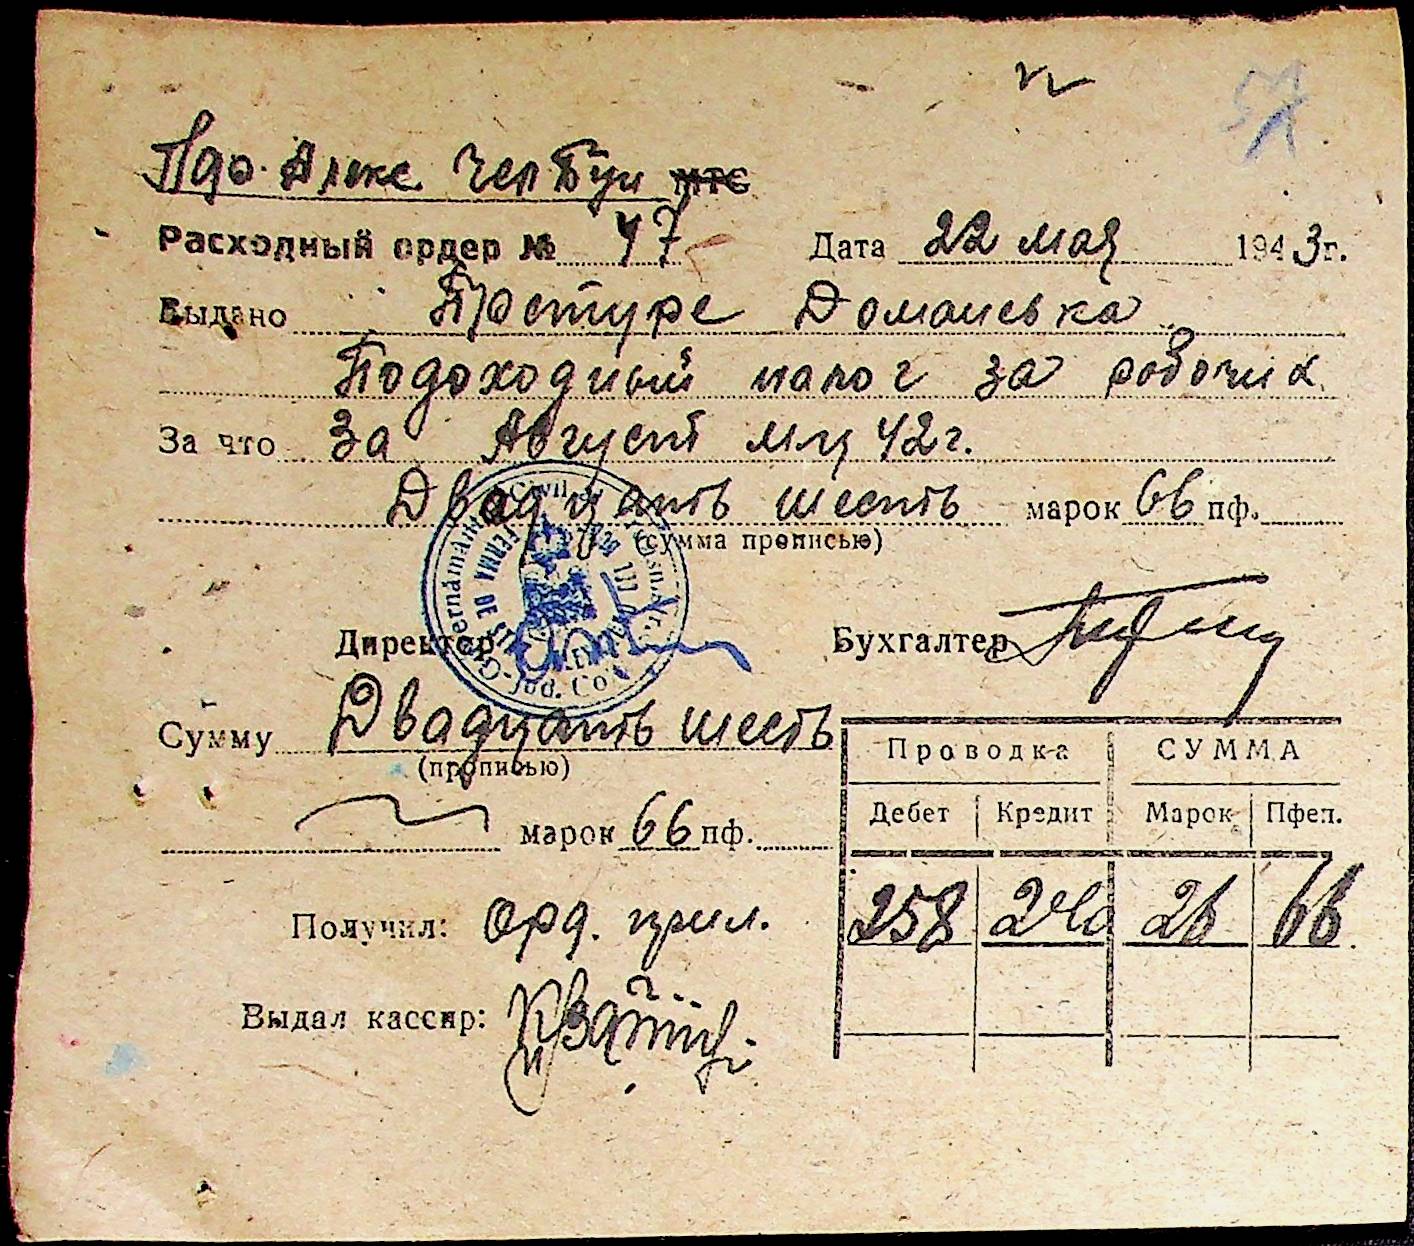 МТС
Расходный ордер № 47 Дата 22 мая 1943г.
Выдано Претуре Доманевка
Подоходный налог за рабочих
За что За Август м-ц 42г.
Двадцать шесть марок 66 пф.
(сумма прописью)
Директор Бухгалтер
FERMA DE STAT
Сумму Двадцать шесть
(прописью)
марок 66 пф.
Проводка СУММА
Дебет Кредит Марок Пфен.
258 240 26 66
Получил: Орд. прил.
Выдал кассир: